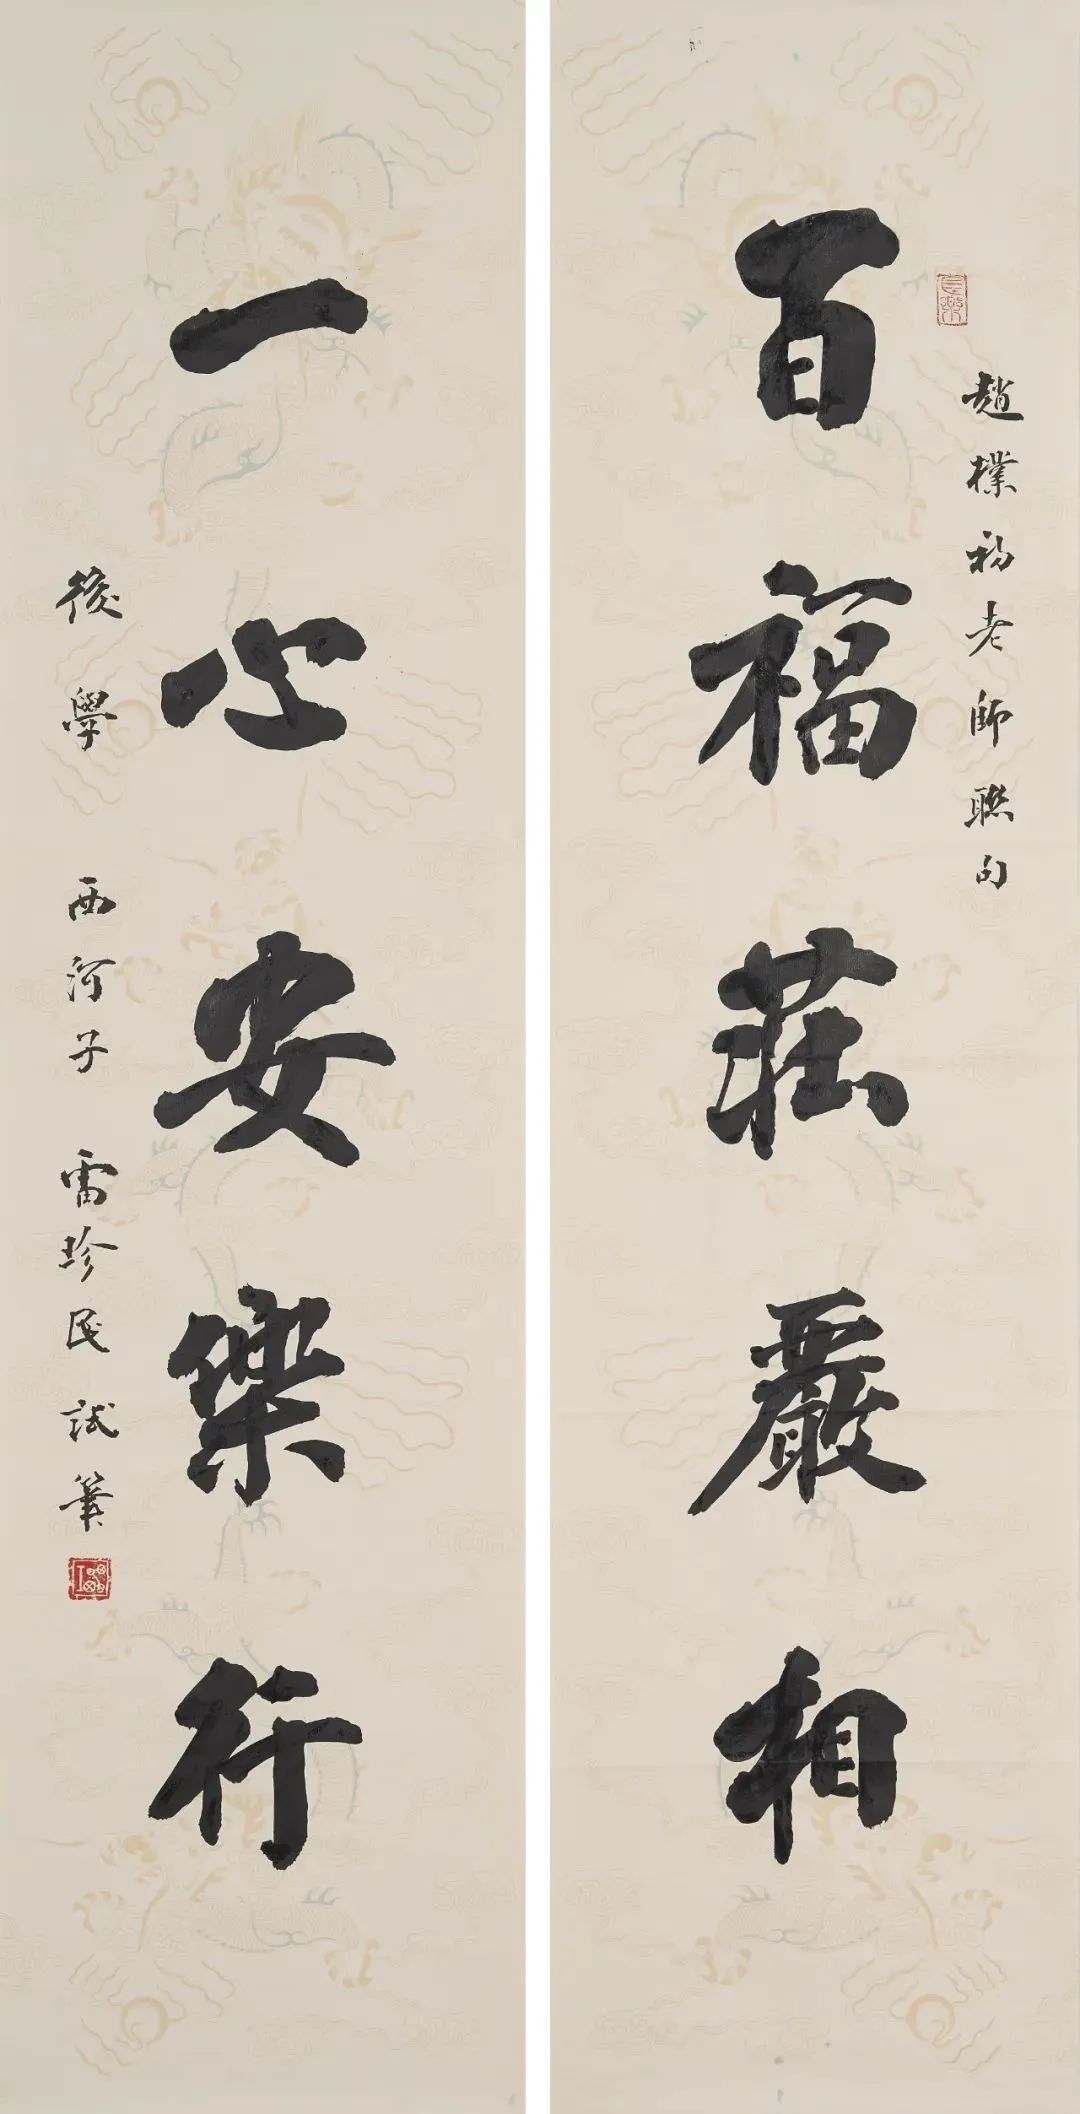 百福莊嚴相
趙樸初老師聯句
長樂
一心安樂行
後學 西河子 雷珍民 試筆